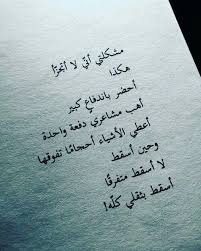 مشكلتي أني لا أتجزأ
هكذا
أحضر باندفاعٍ كبيْر
أهب مشاعري دفعة واحدة
أعطي الأشياء أحجامًا تفوقها
وحين أسقط
لا أسقط متفرقًا
أسقط بثقلي كلّه!